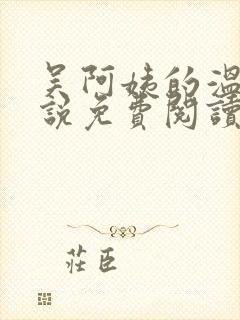 吴阿姨的温
说免費閱讀
莊臣